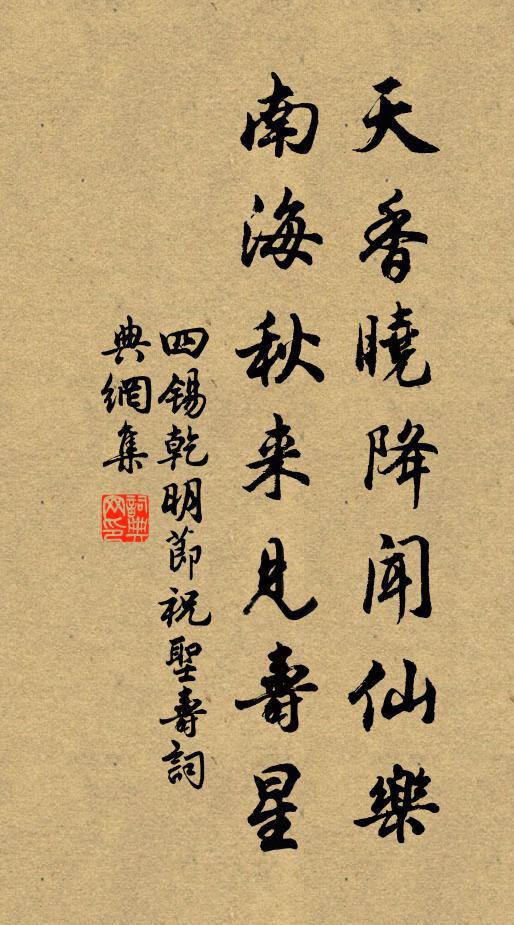 天香曉降聞仙樂
南海秋来見壽星
四錫乾明節祝聖壽詞
典網集
詞典網印